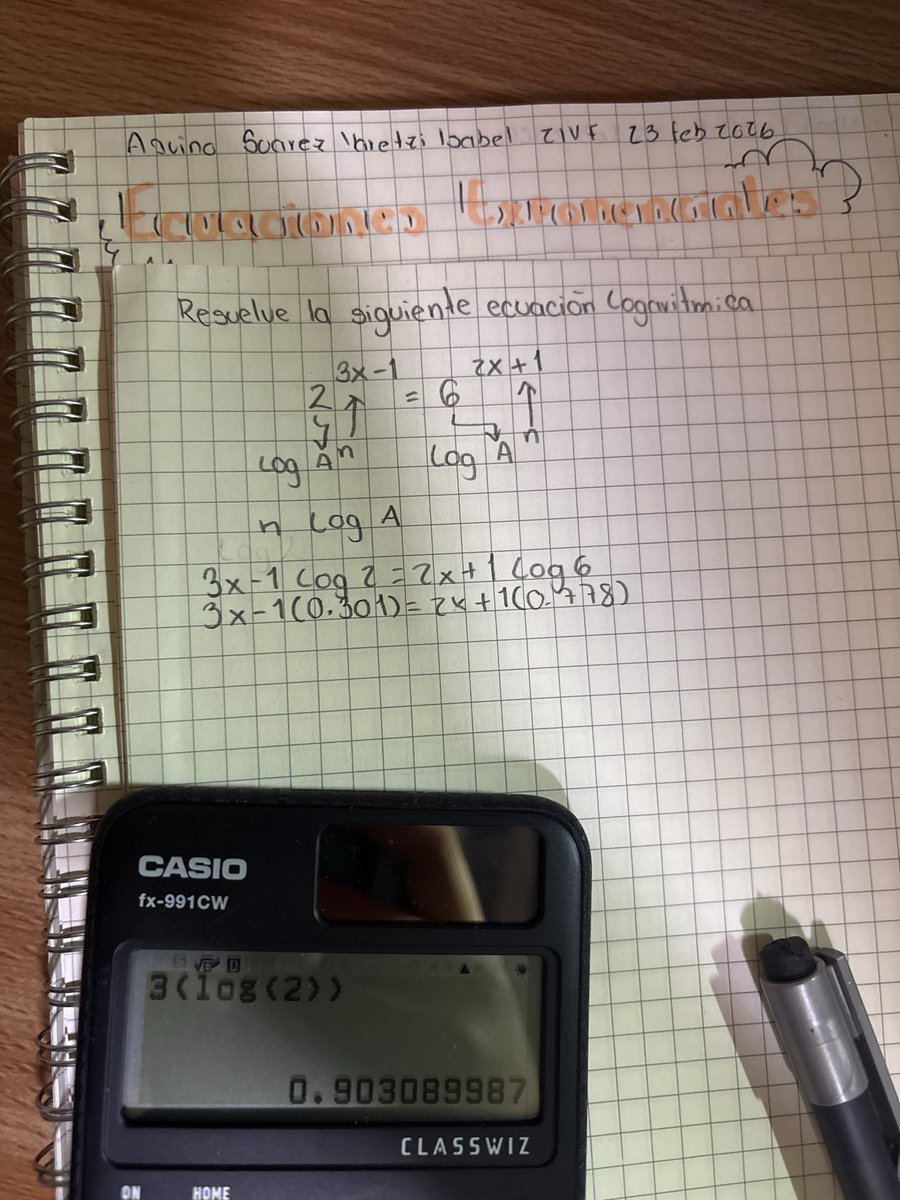 Aquino Suarez Isabel 23 feb 2026
Ecuaciones Exponenciales
Resuelve la siguiente ecuación Logaritmica
2^(3x-1) = 6^(2x+1)
Log A^n Log A^n
n Log A
3x-1 Log 2 = 2x+1 Log 6
3x-1(0.301) = 2x+1(0.778)
CASIO
fx-991CW
3(log(2))
0.903089987
CLASSWIZ
ON HOME